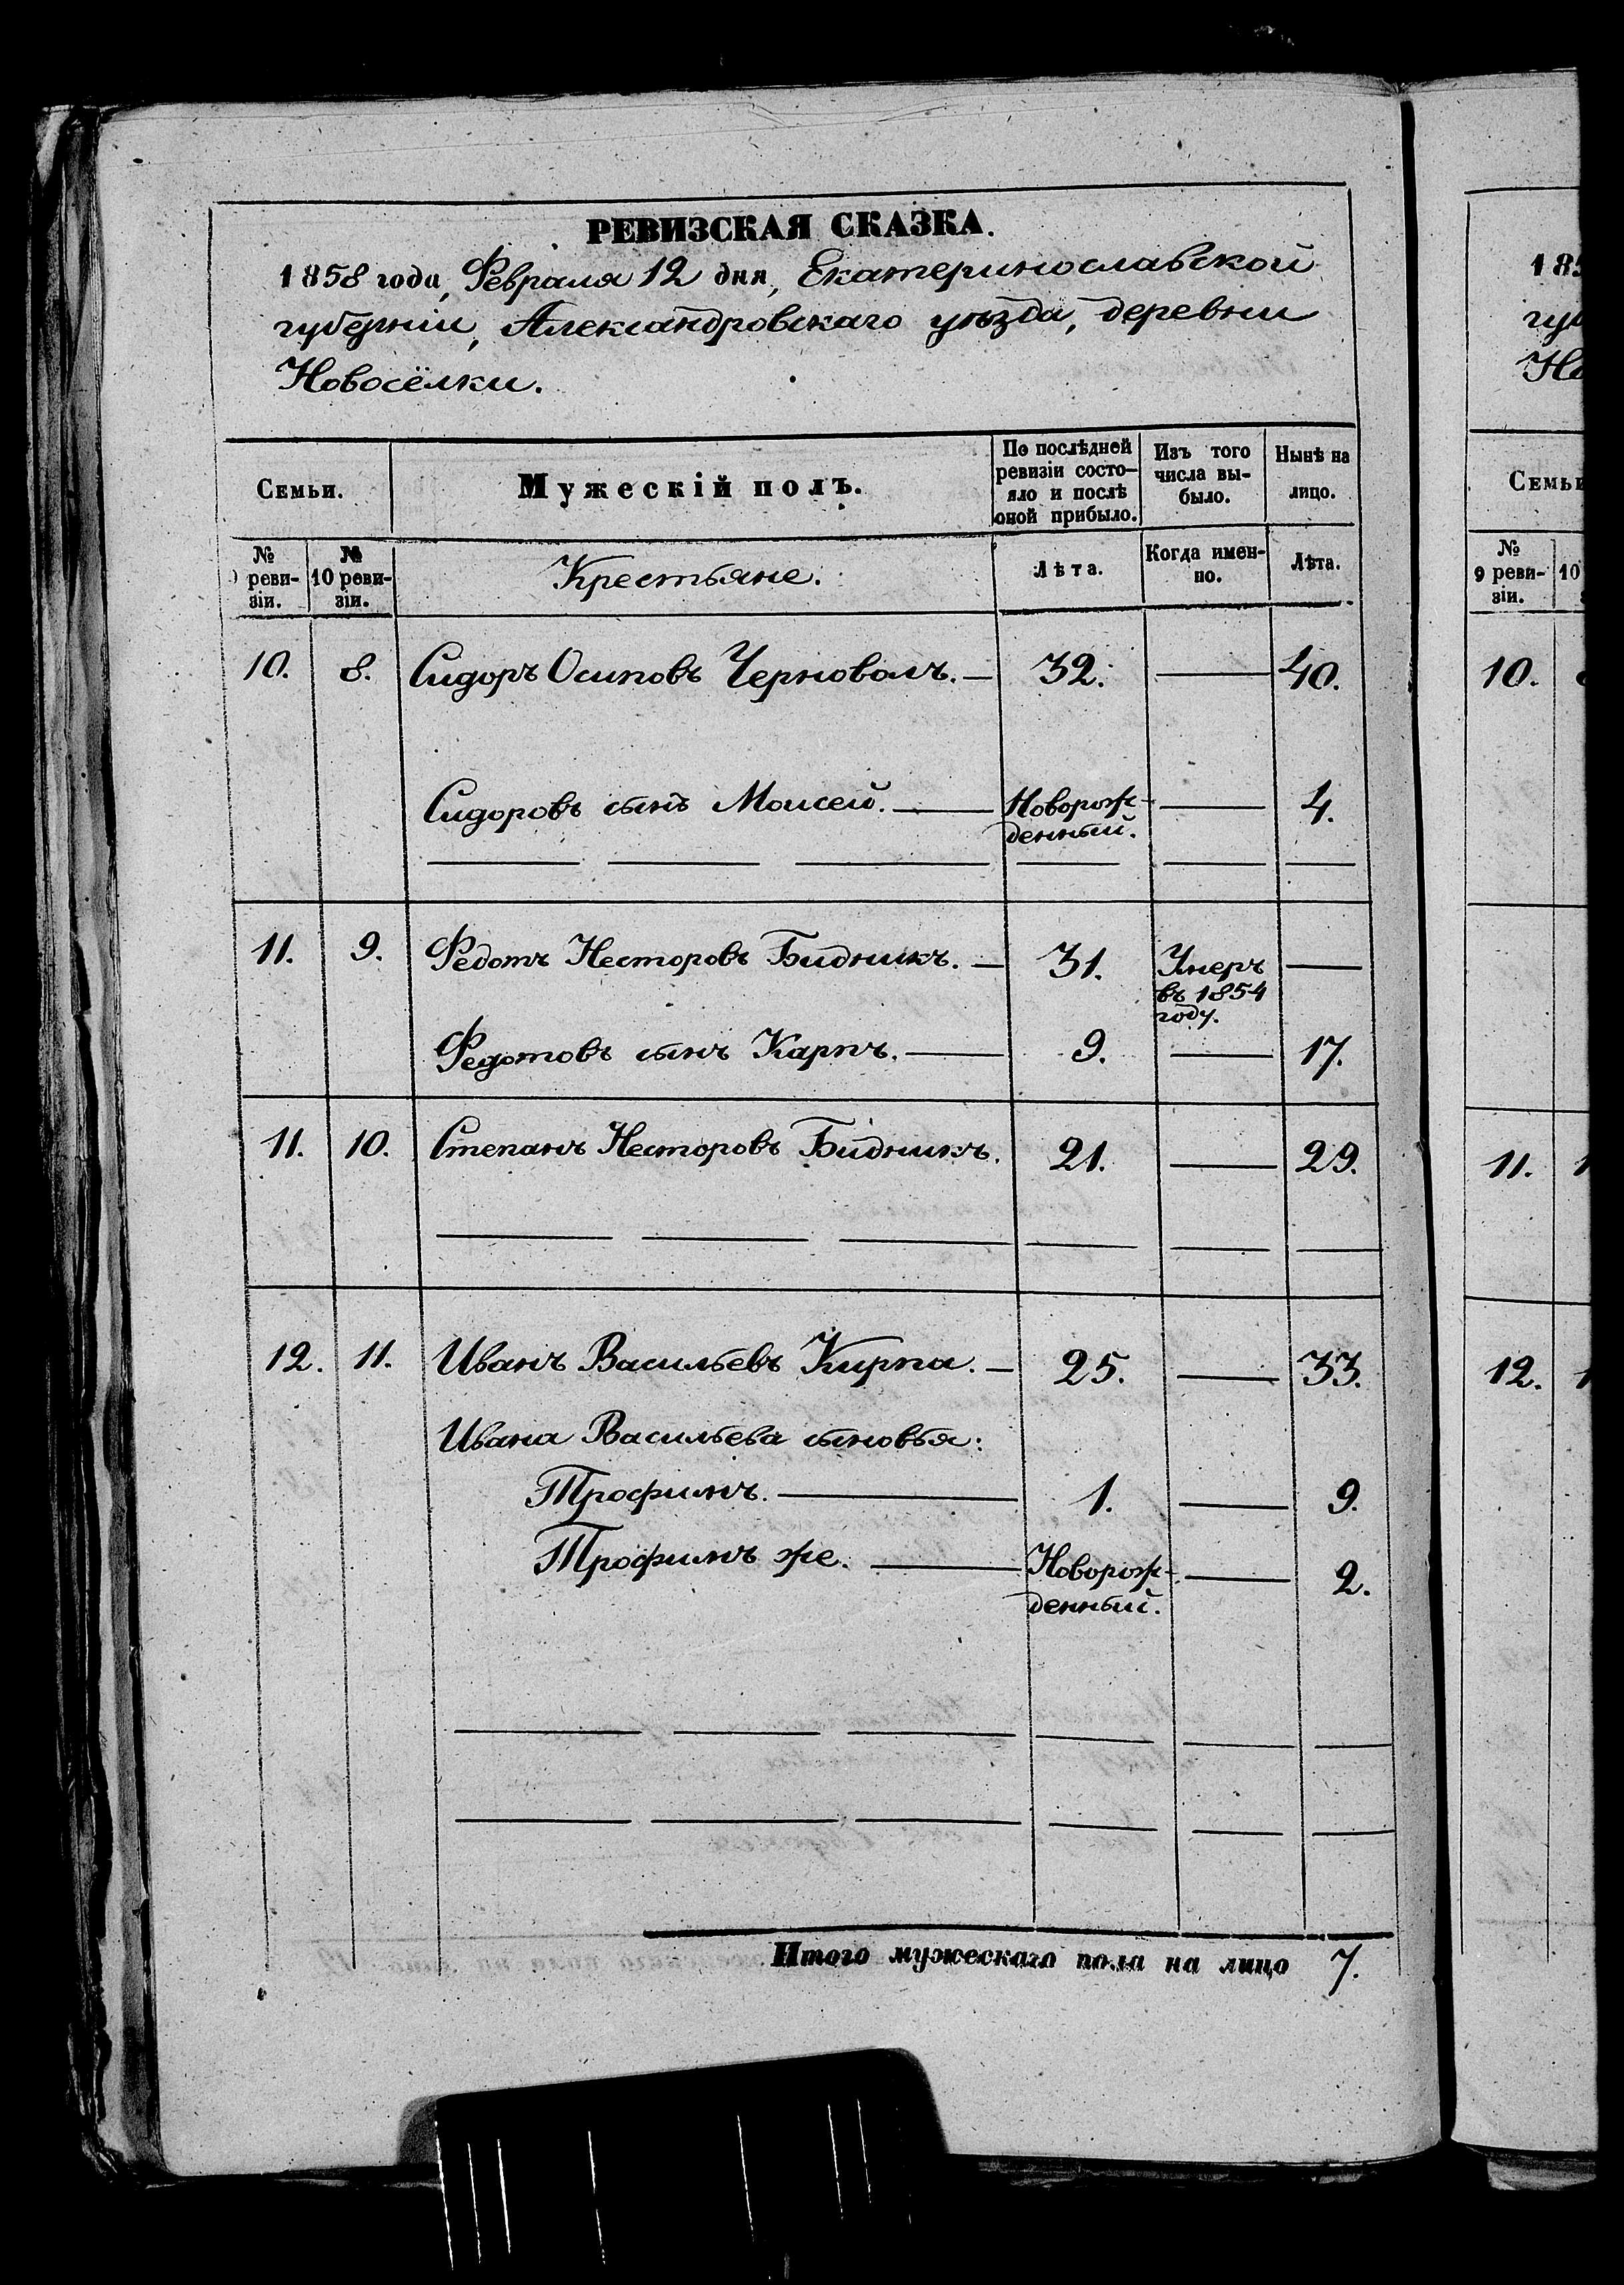 РЕВИЗСКАЯ СКАЗКА.
1858 года, Февраля 12 дня, Екатеринославской
губерніи, Александровскаго уѣзда, деревни
Новосёлки.
Семьи.
Мужескій полъ.
По послѣдней ревизіи состо-яло и послѣ оной прибыло.
Изъ того числа вы-было.
Нынѣ на лицо.
№ реви-зіи.
№ 10 реви-зіи.
Крестьяне.
Лѣта.
Когда имен-но.
Лѣта.
10. 8. Сидоръ Осиповъ Черноволъ. — 32. — 40.
Сидоровъ сынъ Моисей. — Новорож-денный. — 4.
11. 9. Федотъ Несторовъ Бидникъ. — 31. Умеръ въ 1854 году. —
Федотовъ сынъ Карпъ. — 9. — 17.
11. 10. Степанъ Несторовъ Бидникъ. 21. — 29.
12. 11. Иванъ Васильевъ Кирпа. — 25. — 33.
Ивана Васильева сыновья:
Трофимъ. — 1. — 9.
Трофимъ же. — Новорож-денный. — 2.
Итого мужескаго пола на лицо 7.
185
гу
Но
Семьи
№ 9 реви-зіи.
10
10.
11.
12.